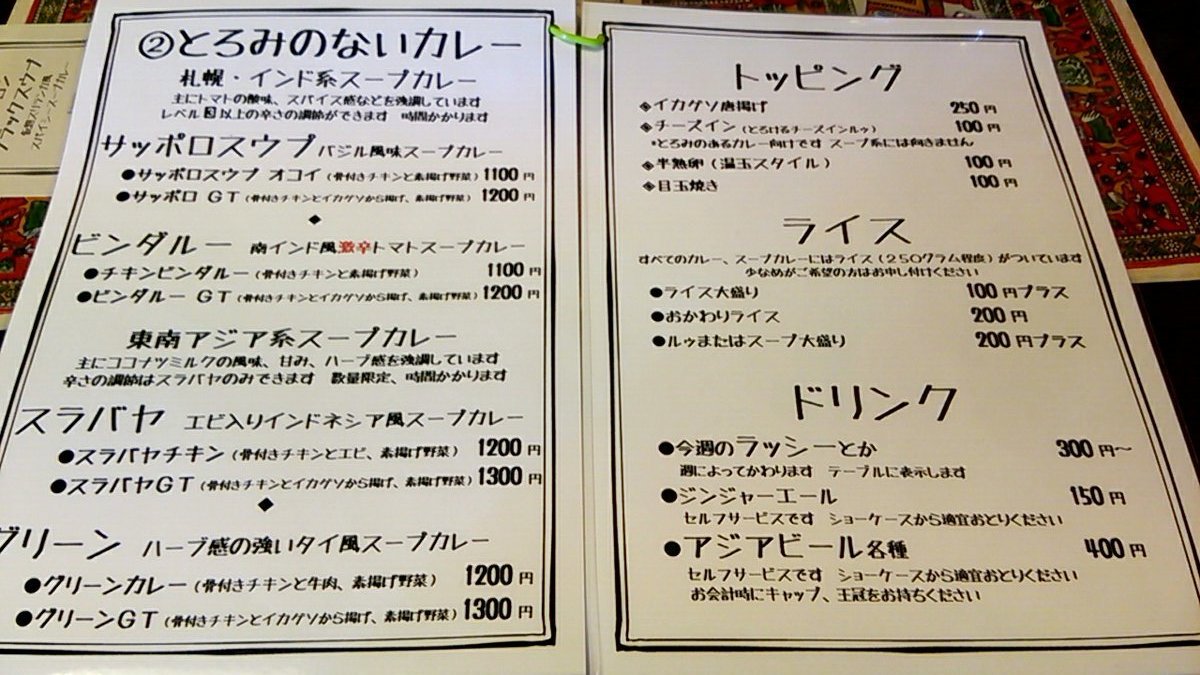 ②とろみのないカレー
札幌・インド系スープカレー
主にトマトの酸味、スパイス感などを強調しています
レベル③以上の辛さの調節ができます 時間かかります
サッポロスウプ バジル風味スープカレー
●サッポロスウプ オコイ(骨付きチキンと素揚げ野菜) 1100円
●サッポロ GT(骨付きチキンとイカゲソから揚げ、素揚げ野菜) 1200円
◆
ビンダルー 南インド風激辛トマトスープカレー
●チキンビンダルー(骨付きチキンと素揚げ野菜) 1100円
●ビンダルー GT(骨付きチキンとイカゲソから揚げ、素揚げ野菜) 1200円
東南アジア系スープカレー
主にココナツミルクの風味、甘み、ハーブ感を強調しています
辛さの調節はスラバヤのみできます 数量限定、時間かかります
スラバヤ エビ入りインドネシア風スープカレー
●スラバヤチキン(骨付きチキンとエビ、素揚げ野菜) 1200円
●スラバヤGT(骨付きチキンとイカゲソから揚げ、素揚げ野菜) 1300円
◆
グリーン ハーブ感の強いタイ風スープカレー
●グリーンカレー(骨付きチキンと牛肉、素揚げ野菜) 1200円
●グリーンGT(骨付きチキンとイカゲソから揚げ、素揚げ野菜) 1300円
トッピング
◈イカゲソ唐揚げ 250円
◈チーズイン(とろけるチーズインルゥ) 100円
*とろみのあるカレー向けです スープ系には向きません
◈半熟卵(温玉スタイル) 100円
◈目玉焼き 100円
ライス
すべてのカレー、スープカレーにはライス(250グラム程度)がついています
少なめがご希望の方はお申し付けください
●ライス大盛り 100円プラス
●おかわりライス 200円
●ルゥまたはスープ大盛り 200円プラス
ドリンク
●今週のラッシーとか 300円〜
週によってかわります テーブルに表示します
●ジンジャーエール 150円
セルフサービスです ショーケースから適宜おとりください
●アジアビール各種 400円
セルフサービスです ショーケースから適宜おとりください
お会計時にキャップ、王冠をお持ちください